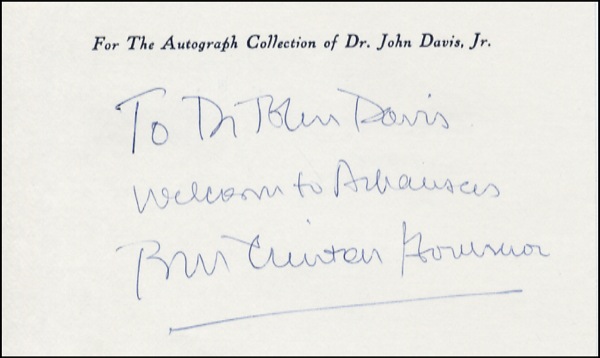 For The Autograph Collection of Dr. John Davis, Jr.
To Dr John Davis
Welcome to Arkansas
Bill Clinton Governor